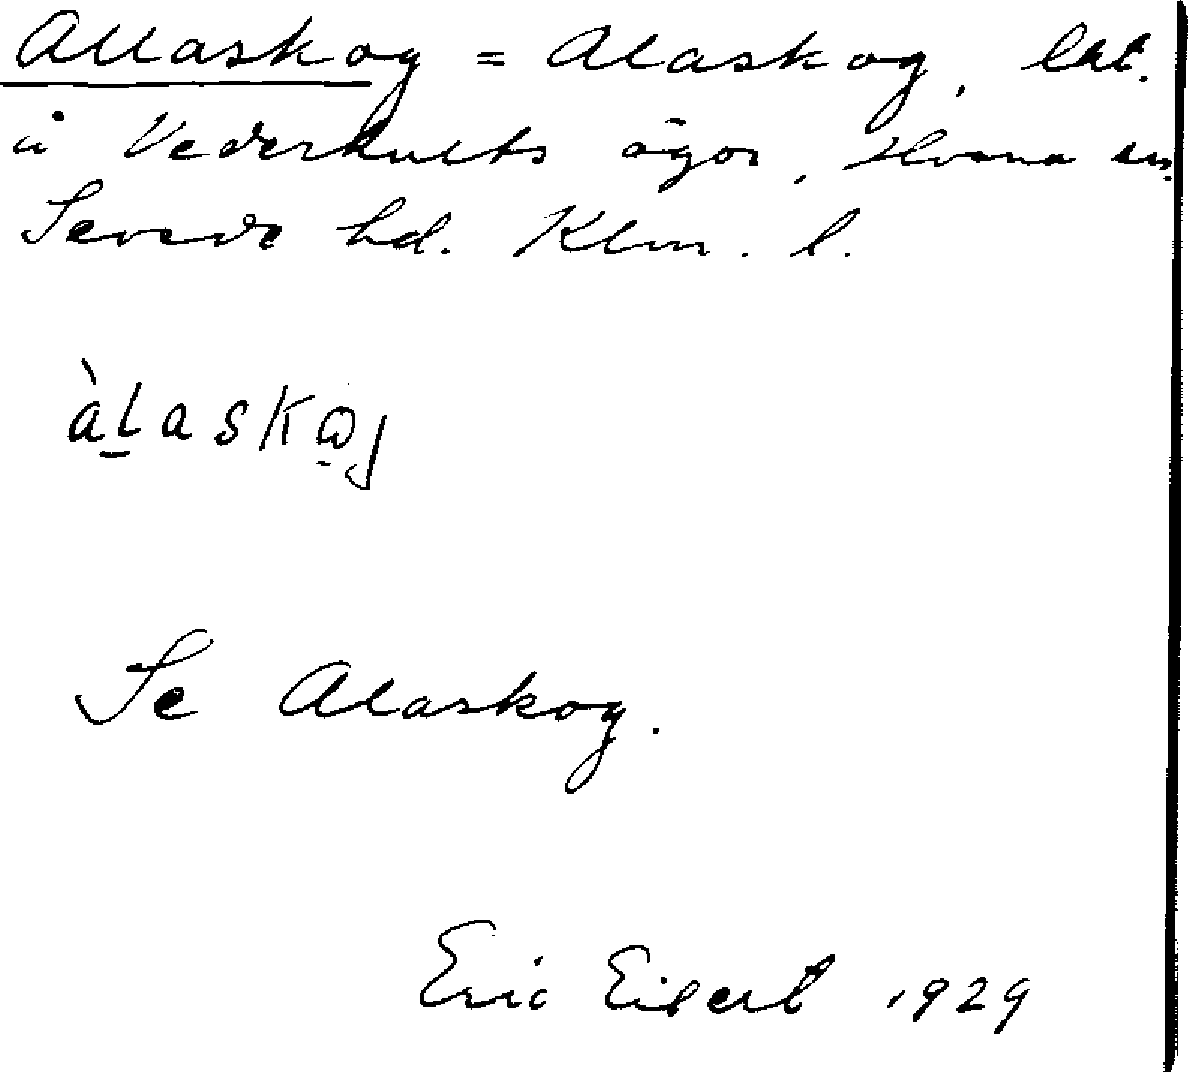 Allaskog = Alaskog, lht.
å Vederhults ägor, Hvena sn.
Sevede hd. Klm. l.
àl̲askω̲j
Se Alaskog.
Eric Eilert 1929